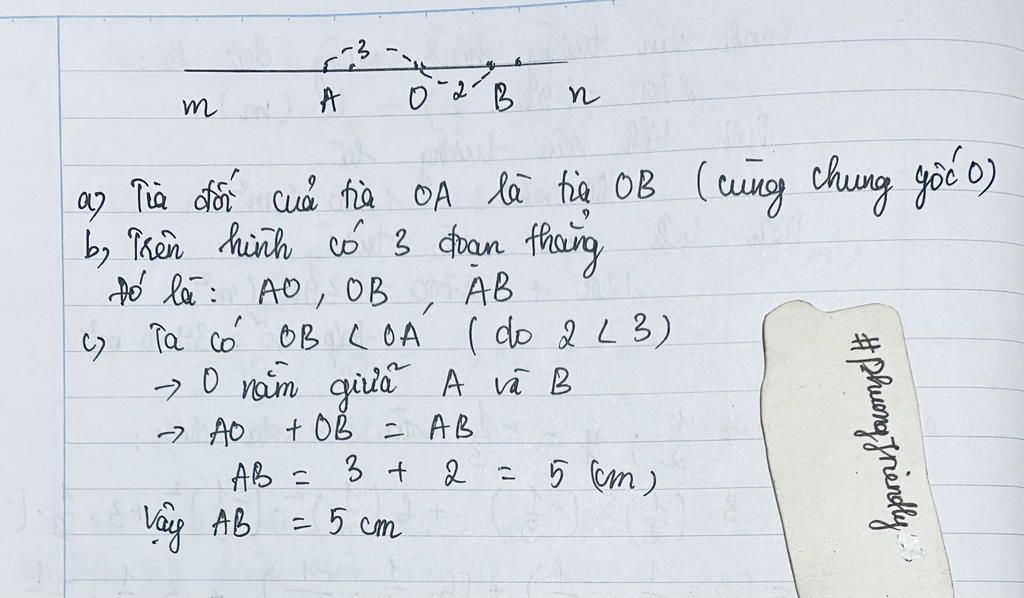 3
2
m A O B n
a) Tia đối của tia OA là tia OB (cùng chung gốc O)
b, Trên hình có 3 đoạn thẳng
Đó là: AO, OB, AB
c) Ta có OB < OA (do 2 < 3)
→ O nằm giữa A và B
→ AO + OB = AB
AB = 3 + 2 = 5 (cm)
Vậy AB = 5 cm
#phuong_friendly